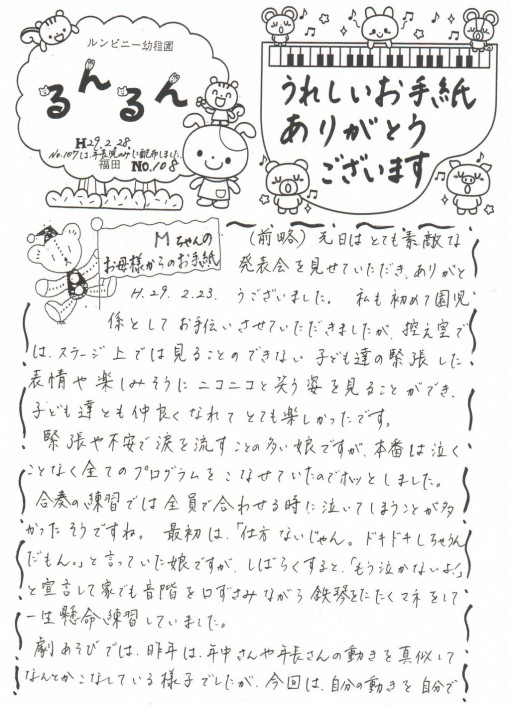 ルンビニー幼稚園
るんるん
H29.2.28.
No.107は、年長児のみに配布しました。
福田 No.108
うれしいお手紙
ありがとう
ございます
Mちゃんの
お母様からのお手紙
H.29.2.23.
(前略) 先日はとても素敵な
発表会を見せていただき、ありがと
うございました。 私も初めて園児
係としてお手伝いさせていただきましたが、控え室で
は、ステージ上では見ることのできない子ども達の緊張した
表情や楽しみそうにニコニコと笑う姿を見ることができ、
子ども達とも仲良くなれてとても楽しかったです。
緊張や不安で涙を流すことの多い娘ですが、本番は泣く
ことなく全てのプログラムをこなせていたのでホッとしました。
合奏の練習では全員で合わせる時に泣いてしまうことが多
かったそうですね。 最初は、「仕方ないじゃん。ドキドキしちゃうん
だもん。」と言っていた娘ですが、しばらくすると、「もう泣かないよ!」
と宣言して家でも音階を口ずさみながら鉄琴をたたくマネをして
一生懸命練習していました。
劇あそびでは、昨年は、年中さんや年長さんの動きを真似して
なんとかこなしている様子でしたが、今回は、自分の動きを自分で